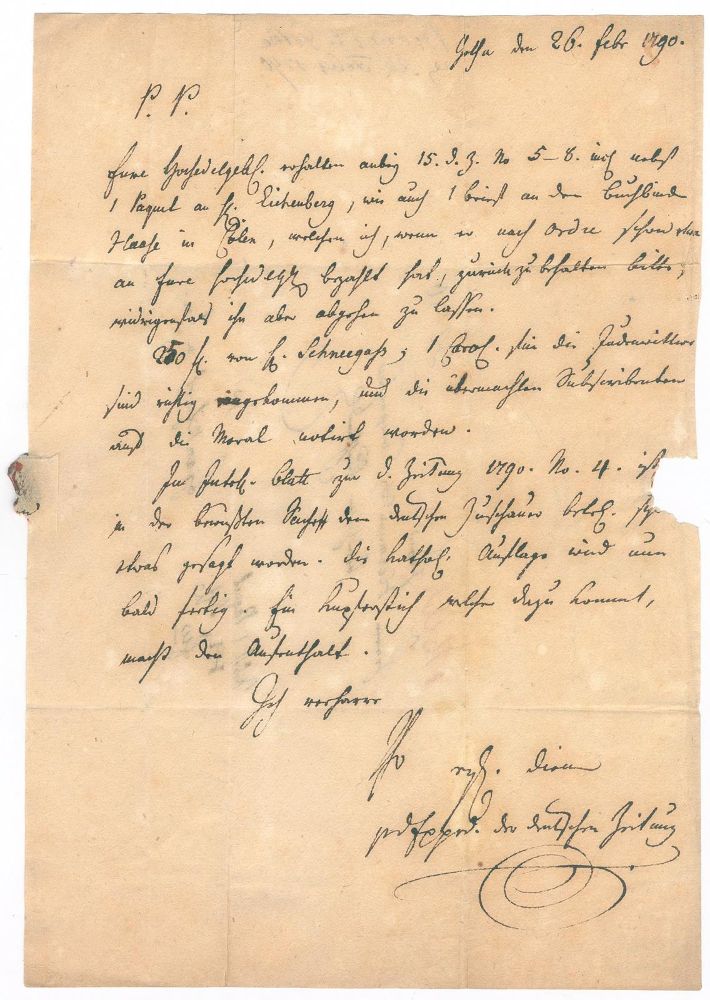 Gotha den 26. Febr 1790.
P. P.
Eure Hochedelgeb. erhalten anbey 15. d. Z. No 5–8. incl nebst
1 Paquet an H. Eichenberg, wie auch 1 brief an den Buchbinder
Haase in Cölln, welchen ich, wenn er nach Ordre schon etwas
an Eure Hochedelgb bezahlt hat, zurück zu behalten bitte,
widrigenfals ihn aber abgehen zu lassen.
von H. Schneegaß; 1 Carol. für die Judenwittwe
sind richtig eingekommen, und die übermachten Subscribenten
auf die Moral notirt worden.
Im Intell. blatt zur d. Zeitung 1790. No. 4. ist
in der bewußten Sache dem deutschen Zuschauer betr. schon
etwas gesagt worden. die kathol. Auflage wird nun
bald fertig. Ein Kupferstich welcher dazu kommt,
macht den Aufenthalt.
Ich verharre
Ew
erg. diener
d Exped. der deutschen Zeitung